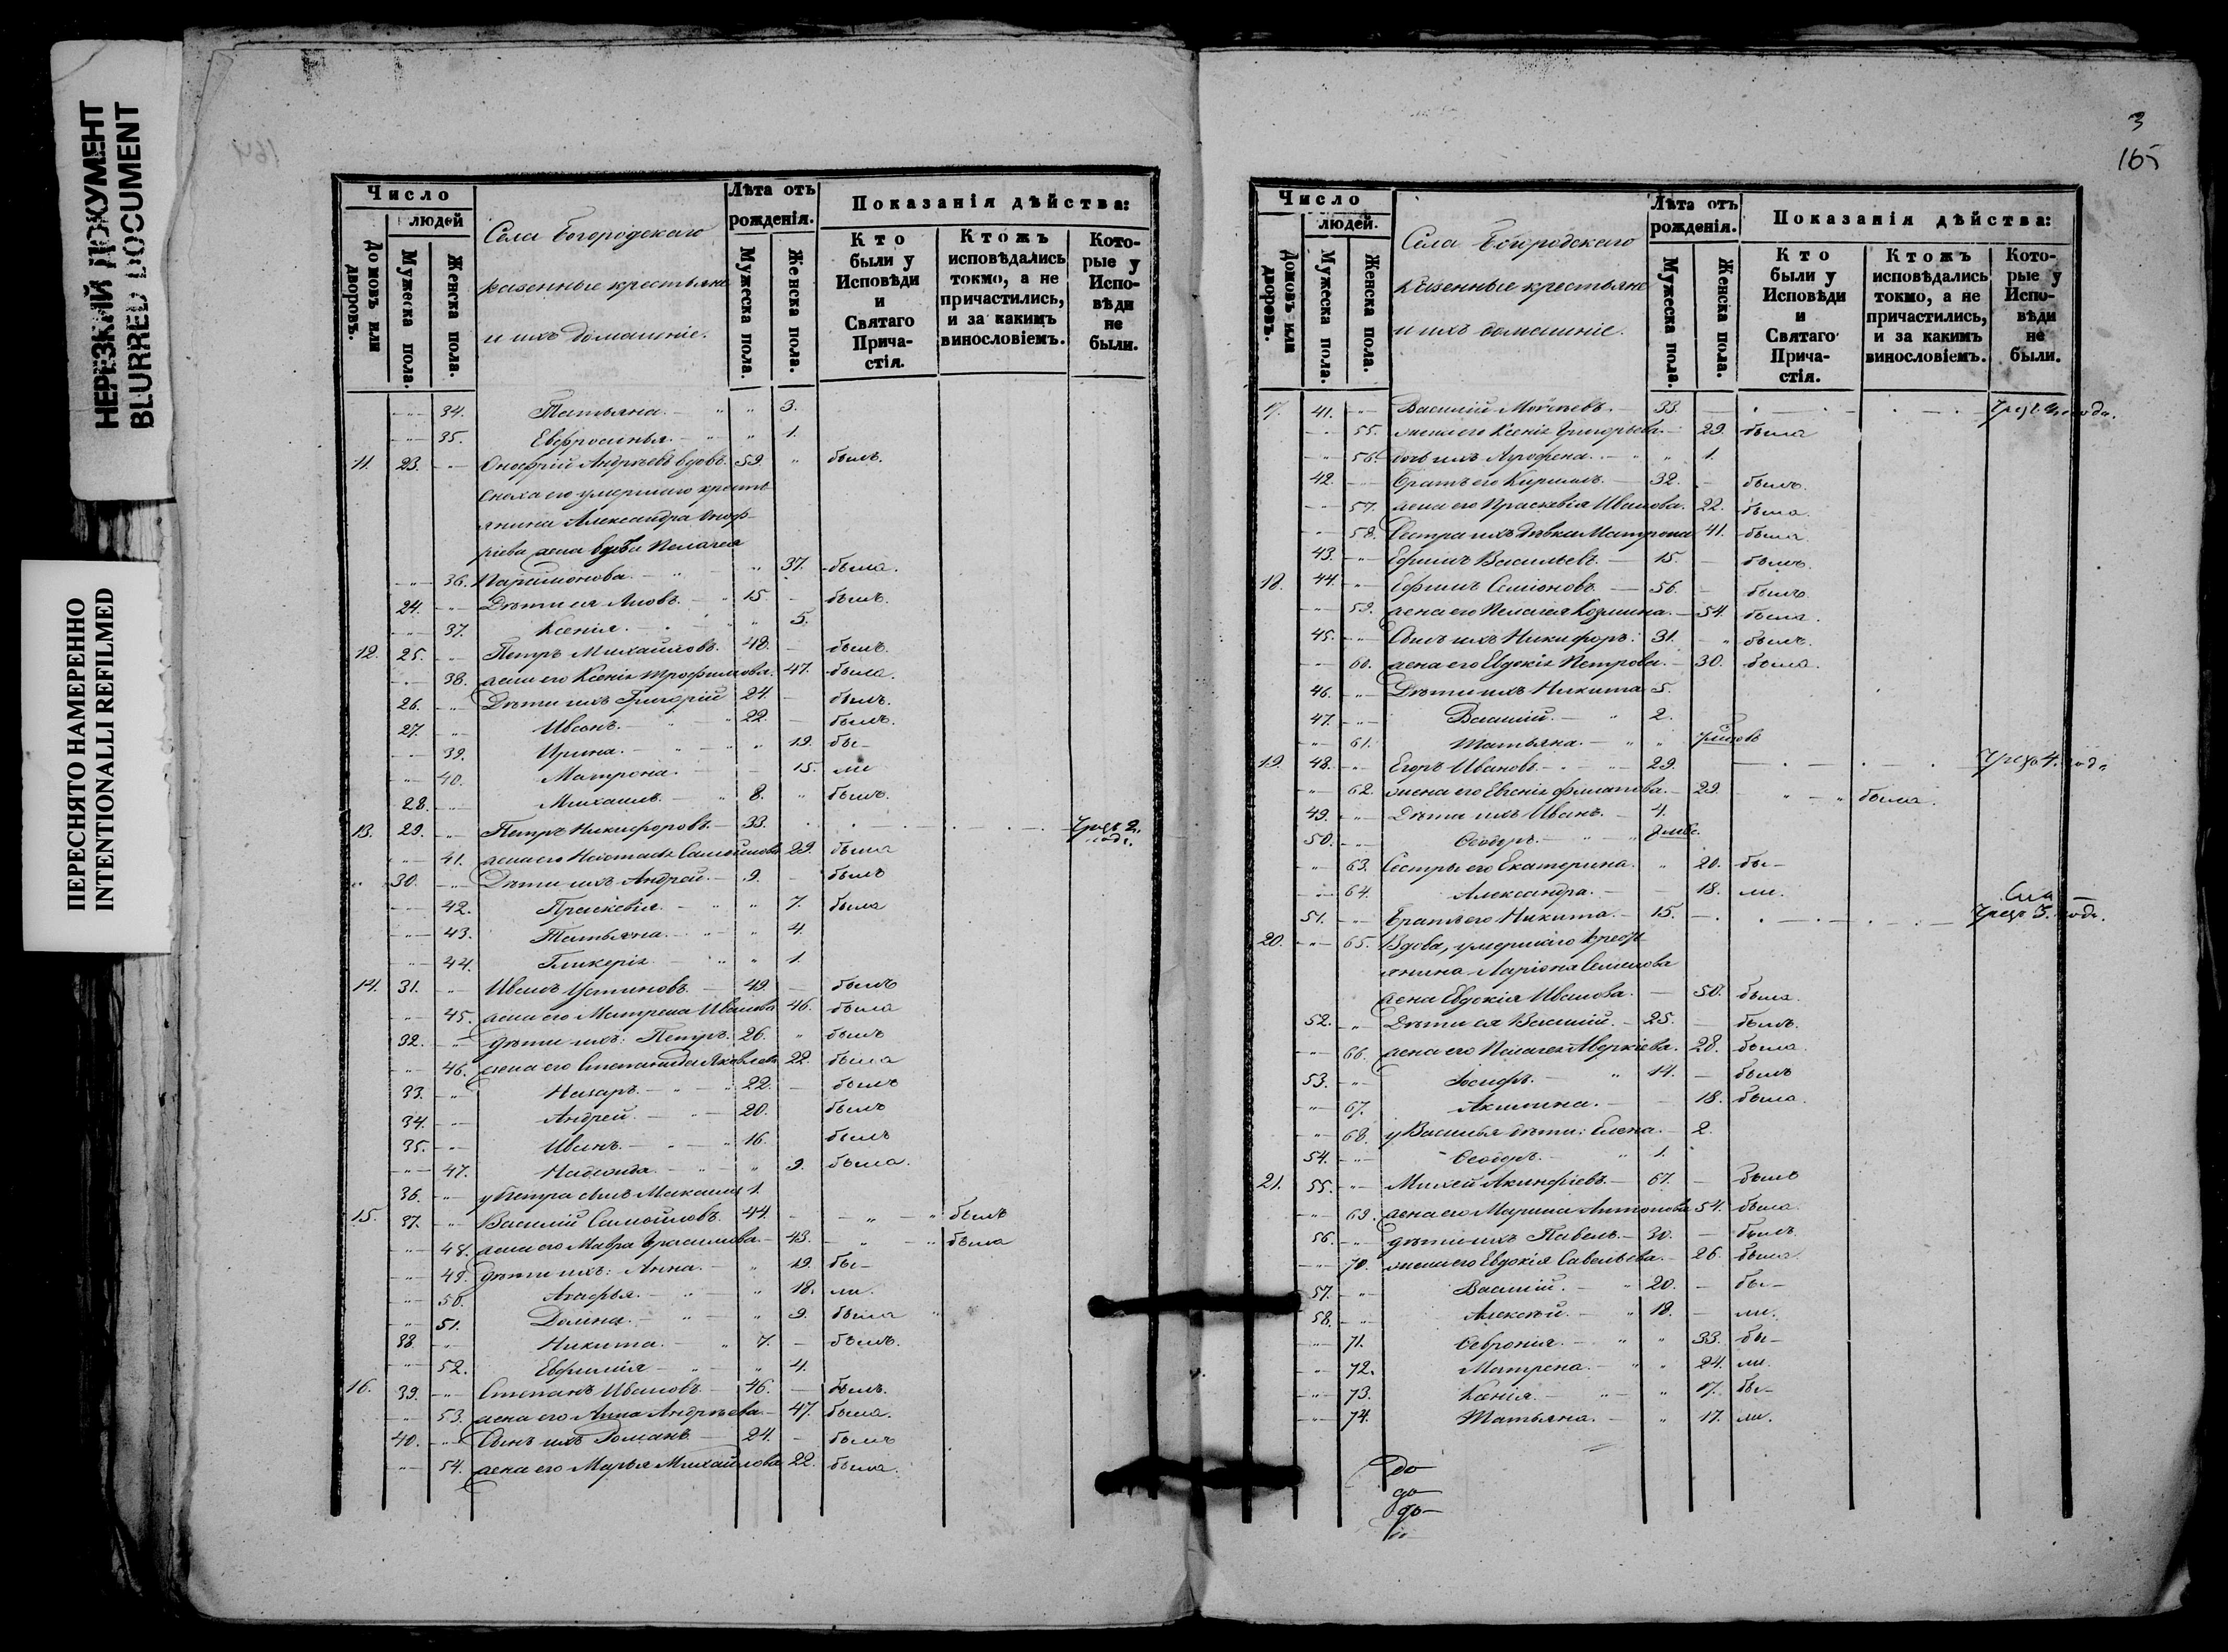 НЕРЕЗКИЙ ДОКУМЕНТ
BLURRED DOCUMENT
ПЕРЕСНЯТО НАМЕРЕННО
INTENTIONALLI REFILMED
164
Число
людей
Домовъ или дворовъ.
Мужеска пола.
Женска пола.
Села Богородскаго
казенные крестьяне
и ихъ домашніе.
Лѣта отъ рожденія.
Мужеска пола.
Женска пола.
Показанія дѣйства:
Кто были у Исповѣди и Святаго Прича-стія.
Ктожъ исповѣдались токмо, а не причастились, и за какимъ винословіемъ.
Кото-рые у Испо-вѣди не были.
34. Татьяна. 3.
35. Евфросинья. 1.
11. 23. Онофрій Андреевъ вдовъ. 59. былъ.
Сноха его умершаго кресть
янина Александра Оноф-
ріева жена вдова Пелагея
36. Парамонова. 37. была.
24. Дѣти ея Яковъ. 15. былъ.
37. Ксенія. 5.
12. 25. Петръ Михайловъ. 48. былъ.
38. жена его Ксенія Трофимова. 47. была.
26. Дѣти ихъ Григорій 24. былъ.
27. Иванъ. 22. былъ.
39. Ирина. 19. бы-
40. Матрона. 15. ли
28. Михаилъ. 8. былъ.
13. 29. Петръ Никифоровъ. 33. Чрезъ 2. года.
41. жена его Самойлова 29. была
30. Дѣти ихъ Андрей. 9. былъ
42. Праскевія. 7. была
43. Татьяна. 4.
44. Гликерія. 1.
14. 31. Иванъ Устиновъ. 49. былъ
45. жена его Матрена Иванова 46. была
32. дѣти ихъ: Петръ. 26. былъ
46. жена его Степанида Яковлева 22. была
33. Назаръ. 22. былъ
34. Андрей. 20. былъ
35. Иванъ. 16. былъ
47. Надежда. 9. была.
36. у Петра сынъ Михаилъ 1.
15. 37. Василій Самойловъ. 44. былъ
48. жена его Мавра Герасимова. 43. была
49. дѣти ихъ: Анна. 19. бы-
50. Агафья. 18. ли.
51. Домна. 9. была
38. Никита. 7. былъ.
52. Евфимія 4.
16. 39. Степанъ Ивановъ. 46. былъ.
53. жена его Анна Андреева. 47. была.
40. Сынъ ихъ Романъ. 24. былъ
54. жена его Марья Михайлова 22. была.
3
165
Число
людей.
Домовъ или дворовъ.
Мужеска пола.
Женска пола.
Села Богородскаго
Казенные крестьяне
и ихъ домашніе.
Лѣта отъ рожденія.
Мужеска пола.
Женска пола.
Показанія дѣйства:
Кто были у Исповѣди и Святаго Прича-стія.
Ктожъ исповѣдались токмо, а не причастились, и за какимъ винословіемъ.
Кото-рые у Испо-вѣди не были.
17. 41. Василій Моисеевъ. 33. Чрезъ года.
55. жена его Ксенія Григорьева. 29. была
56. дочь ихъ Агрофена. 1.
42. Братъ его Кирилъ. 32. былъ.
57. жена его Праскевія Иванова. 22. была.
58. Сестра ихъ дѣвка Матрона 41. была.
43. Ефимъ Васильевъ. 15. былъ.
18. 44. Ефимъ Семіоновъ. 56. былъ
59. жена его Пелагея Козмина. 54. была.
45. Сынъ ихъ Никифоръ. 31. былъ.
60. жена его Евдокія Петрова. 30. была.
46. Дѣти ихъ Никита 5.
47. Василій. 2.
61. Татьяна.
19. 48. Егоръ Ивановъ. 29. Чрезъ 4. года
62. жена его Евгенія Филатова. 29. была.
49. Дѣти ихъ Иванъ. 4.
50. Ѳеодоръ.
63. Сестры его Екатерина. 20. бы-
64. Александра. 18. ли.
51. Братъ его Никита. 15. Чрезъ 3. года.
20. 65. Вдова, умершаго крест
янина Ларіона Семенова
жена Евдокія Иванова. 50. была.
52. Дѣти ея Василій. 25. былъ.
66. жена его Пелагея Аверкіева. 28. была.
53. Іосифъ. 14. былъ
67. Акилина. 18. была.
68. у Василья дѣти: Елена. 2.
54. Ѳеодоръ. 1.
21. 55. Михей Акинфіевъ. 61. былъ
69. жена его Марина Антонова 54. была.
56. дѣти ихъ Павелъ. 30. былъ.
70. жена его Евдокія Савельева. 26. была
57. Василій. 20. бы-
58. Алексѣй. 18. ли.
71. Ѳевронія. 33. бы-
72. Матрена. 24. ли.
73. Ксенія. 17. бы-
74. Татьяна. 17. ли.